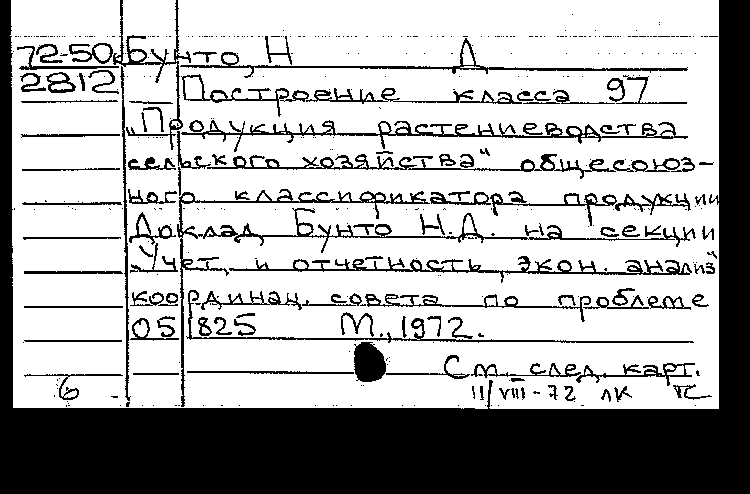 72-50 Бунто, Н Д
2812 Построение класса 97
„Продукция растениеводства
сельского хозяйства" общесоюз-
ного классификатора продукции
Доклад Бунто Н.Д. на секции
„Учет, и отчетность, экон. анализ"
координац. совета по проблеме
051825 М., 1972.
См. след. карт.
6 11/VIII-72 лк